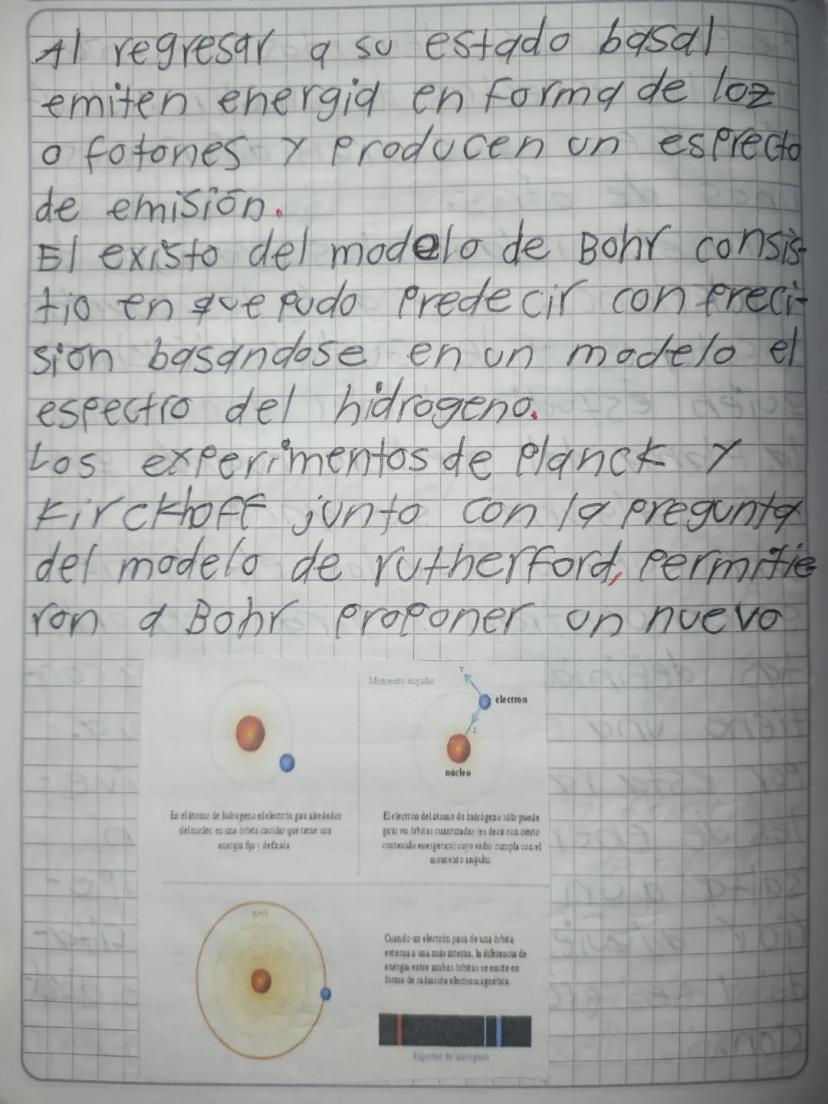 Al regresar a su estado basal
emiten energia en forma de loz
o fotones y producen un esprecto
de emisión.
El existo del modelo de Bohr consis-
tio en que pudo predecir con preci-
sion basandose en un modelo el
espectro del hidrogeno.
Los experimentos de Planck y
Kirckhoff junto con la pregunta
del modelo de rutherford, permitie
ron a Bohr proponer un nuevo
Momento angular
electrón
núcleo
En el átomo de hidrógeno el electrón gira alrededor
del núcleo en una órbita circular que tiene una
energía fija y definida
El electrón del átomo de hidrógeno sólo puede
girar en órbitas cuantizadas (es decir con cierto
contenido energético) cuyo radio cumpla con el
momento angular.
n=3
Cuando un electrón pasa de una órbita
externa a una más interna, la diferencia de
energía entre ambas órbitas se emite en
forma de radiación electromagnética.
Espectro de hidrógeno